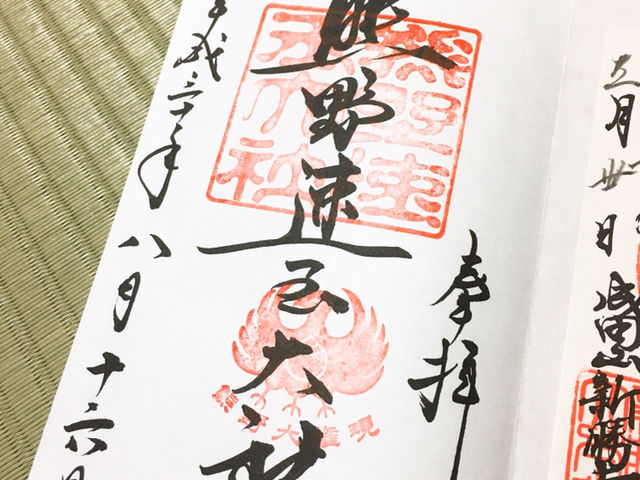 五月
日
成田山新勝
奉拝
熊野速玉大社
熊野速玉大社
熊野大権現
平成三十年八月十六日